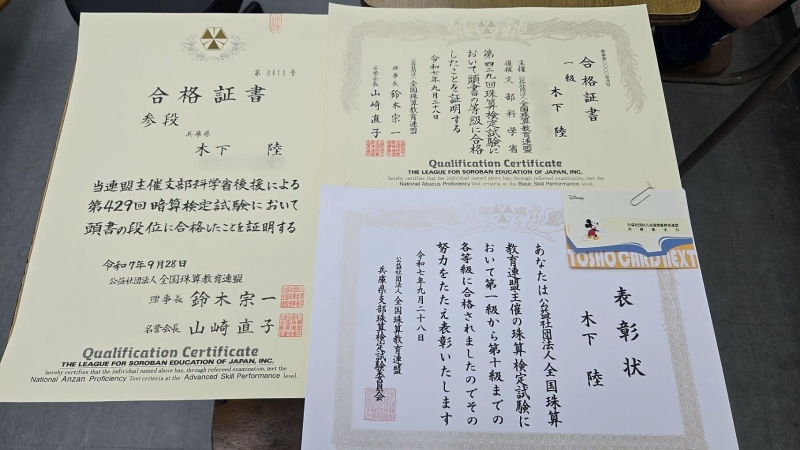 第 0813 号
合格証書
参段
兵庫県
木下 陸
当連盟主催文部科学省後援による
第429回暗算検定試験において
頭書の段位に合格したことを証明する
令和7年9月28日
公益社団法人 全国珠算教育連盟
理事長 鈴木宗一
名誉会長 山崎直子
Qualification Certificate
THE LEAGUE FOR SOROBAN EDUCATION OF JAPAN, INC.
hereby certifies that the individual named above has, through refereed examination, met the
National Anzan Proficiency Test criteria at the Advanced Skill Performance level.
合格証書
一級
木下 陸
主催 公益社団法人 全国珠算教育連盟
後援 文部科学省
第四二九回珠算検定試験に
おいて頭書の等級に合格
したことを証明する
令和七年九月二十八日
公益社団法人 全国珠算教育連盟
理事長 鈴木宗一
名誉会長 山崎直子
Qualification Certificate
THE LEAGUE FOR SOROBAN EDUCATION OF JAPAN, INC.
hereby certifies that the individual named above has, through refereed examination, met the
National Abacus Proficiency Test criteria at the Basic Skill Performance level.
Disney
公益社団法人全国珠算教育連盟
兵庫県支部
TOSHO CARD NEXT
表彰状
木下 陸
あなたは公益社団法人全国珠算
教育連盟主催の珠算検定試験に
おいて第一級から第十級までの
各等級に合格されましたのでその
努力をたたえ表彰いたします
令和七年九月二十八日
公益社団法人 全国珠算教育連盟
兵庫県支部珠算検定試験委員会